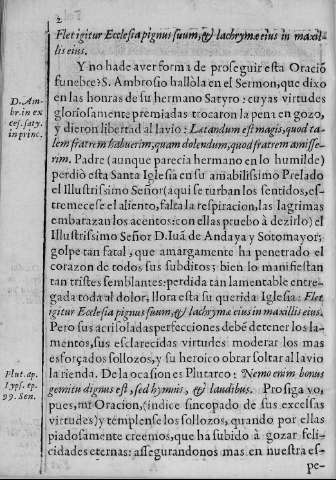 2
Flet igitur Ecclesia pignus suum, & lachrymæ eius in maxil-
lis eius.
Y no hade aver forma de proseguir esta Oració
funebre? S. Ambrosio hallòla en el Sermon, que dixo
en las honras de su hermano Satyro: cuyas virtudes
gloriosamente premiadas trocaron la pena en gozo,
y dieron libertad al lavio: Lætandum est magis, quod ta-
lem fratrem habuerim, quam dolendum, quod fratrem amisse-
rim. Padre (aunque parecia hermano en lo humilde)
perdiò esta Santa Iglesia en su amabilissimo Prelado
el Illustrissimo Señor (aqui se turban los sentidos, es-
tremecese el aliento, falta la respiracion, las lagrimas
embarazan los acentos: con ellas pruebo à dezirlo) el
Illustrissimo Señor D. Iuã de Andaya y Sotomayor;
golpe tan fatal, que amargamente ha penetrado el
corazon de todos sus subditos; bien lo manifiestan
tan tristes semblantes: perdida tan lamentable entre-
gada toda al dolor, llora esta su querida Iglesia: Flet
igitur Ecclesia pignus suum, & lachrymæ eius in maxillis eius.
Pero sus actiloladas perfecciones debẽ detener los la-
mentos, sus esclarecidas virtudes moderar los mas
esforçados sollozos, y su heroico obrar soltar al lavio
la rienda. De la ocasion es Plutarco: Nemo enim bonus
gemitu dignus est, sed hymnis, & laudibus. Prosiga yo,
pues, mi Oracion, (indice sincopado de sus excelsas
virtudes) y templense los sollozos, quando por ellas
piadosamente creemos, que ha subido à gozar feli-
cidades eternas: assegurandonos mas en nuestra es-
pe-
D. Am-
br. in ex
ces. saty.
in princ.
Plut. ap.
Lyps. ep.
99. Sen.